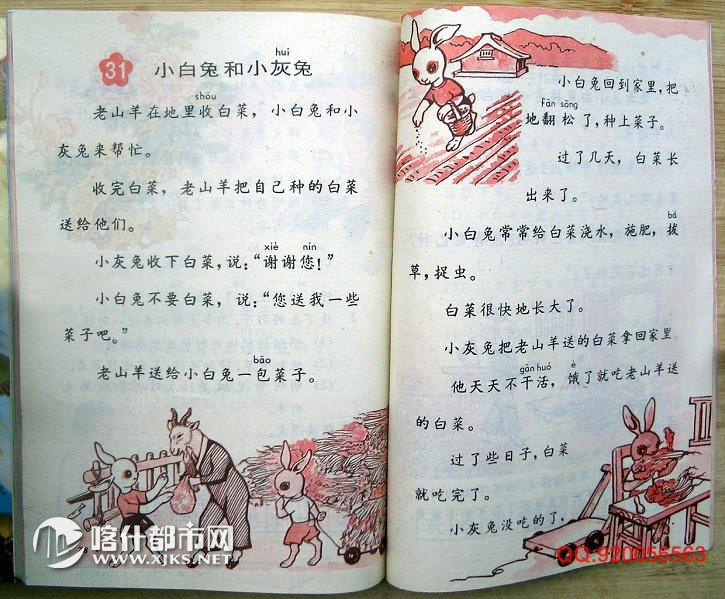 31 小白兔和小灰兔
huī
shōu
老山羊在地里收白菜，小白兔和小
灰兔来帮忙。
收完白菜，老山羊把自己种的白菜
送给他们。
xiè nín
小灰兔收下白菜，说：“谢谢您！”
小白兔不要白菜，说：“您送我一些
菜子吧。”
bāo
老山羊送给小白兔一包菜子。
喀什都市网
WWW.XJKS.NET
小白兔回到家里，把
fān sōng
地翻松了，种上菜子。
过了几天，白菜长
出来了。
bá
小白兔常常给白菜浇水，施肥，拔
草，捉虫。
白菜很快地长大了。
小灰兔把老山羊送的白菜拿回家里。
gàn huó è
他天天不干活，饿了就吃老山羊送
的白菜。
过了些日子，白菜
就吃完了。
小灰兔没吃的了，